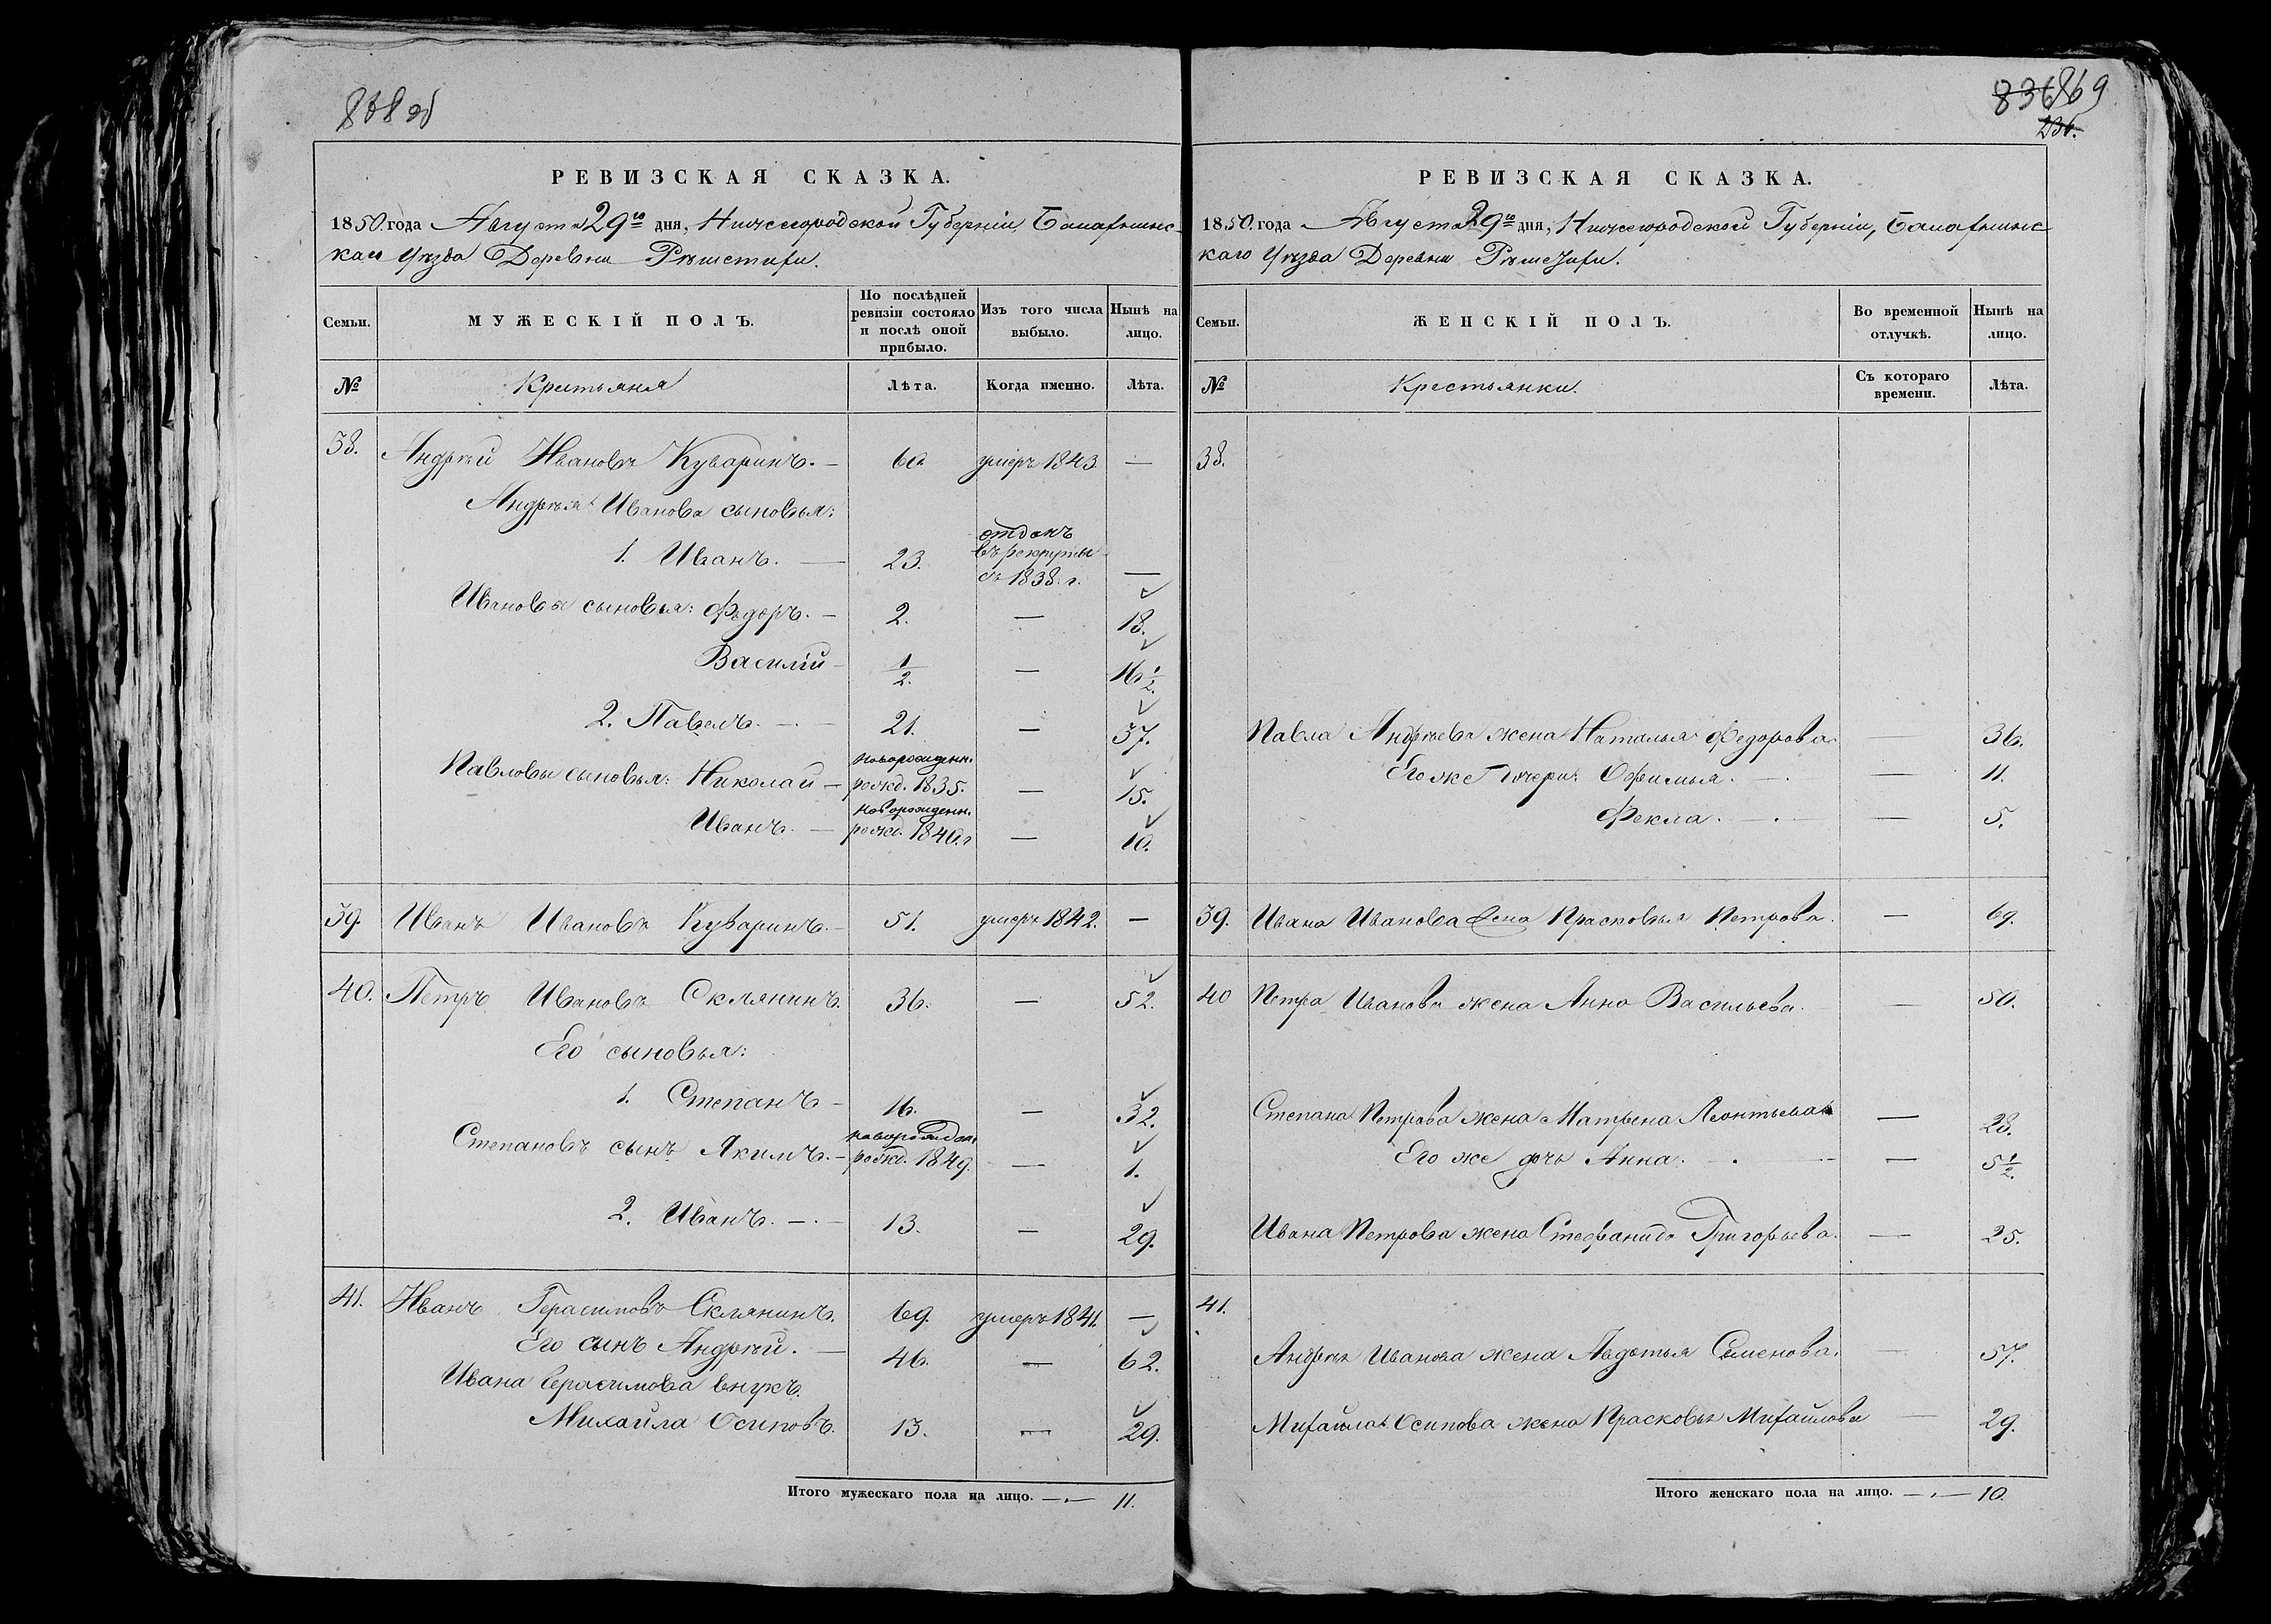 868 об
РЕВИЗСКАЯ СКАЗКА.
1850 года Августа 29го дня, Нижегородской Губерніи, Балахнинс-
каго Уѣзда Деревни
Семьи.
МУЖЕСКІЙ ПОЛЪ.
По послѣдней ревизіи состояло и послѣ оной прибыло.
Изъ того числа выбыло.
Нынѣ на лицо.
№ Крестьяня Лѣта. Когда именно. Лѣта.
38. Андрѣй Ивановъ Куваринъ. — 60 умеръ 1843. —
Андрѣя Иванова сыновья:
1. Иванъ. — 23. отданъ въ рекруты въ 1838. г. —
Ивановы сыновья: Федоръ. — 2. — 18.
Василій — 1/2. — 16 1/2.
2. Павелъ. — 21. — 37.
Павловы сыновья: Николай — новорожденн. рожд. 1835. — 15.
Иванъ. — новорожденн. рожд. 1840. г — 10.
39. Иванъ Ивановъ Куваринъ. — 51. умеръ 1842. —
40. Петръ Ивановъ Склянинъ. 36. — 52.
Его сыновья:
1. Степанъ — 16. — 32.
Степановъ сынъ Якимъ. — новорожден. рожд. 1849. — 1.
2. Иванъ. — 13. — 29.
41. Иванъ Герасимовъ Склянинъ. 69. умеръ 1841. —
Его сынъ Андрѣй. — 46. — 62.
Ивана Герасимова внукъ.
Михайла Осиповъ. 13. — 29.
Итого мужескаго пола на лицо. — 11.
836 869
236.
РЕВИЗСКАЯ СКАЗКА.
1850. года Августа 29го дня, Нижегородской Губерніи, Балахнинс-
каго Уѣзда Деревни
Семьи.
ЖЕНСКІЙ ПОЛЪ.
Во временной отлучкѣ.
Нынѣ на лицо.
№ Крестьянки. Съ котораго времени. Лѣта.
38.
Павла Андрѣева жена Наталья Федорова. 36.
Его же дочери: Офимья. — 11.
Фекла. — 5.
39. Ивана Иванова жена Прасковья Петрова. — 69.
40 Петра Иванова жена Анна Васильева. — 50.
Степана Петрова жена Матрена Леонтьева — 28.
Его же дочь Анна. — 5 1/2.
Ивана Петрова жена Стефанида Григорьева. — 25.
41.
Андрѣя Иванова жена Авдотья Семенова. — 57.
Михайла Осипова жена Прасковья Михайлова — 29.
Итого женскаго пола на лицо. — 10.